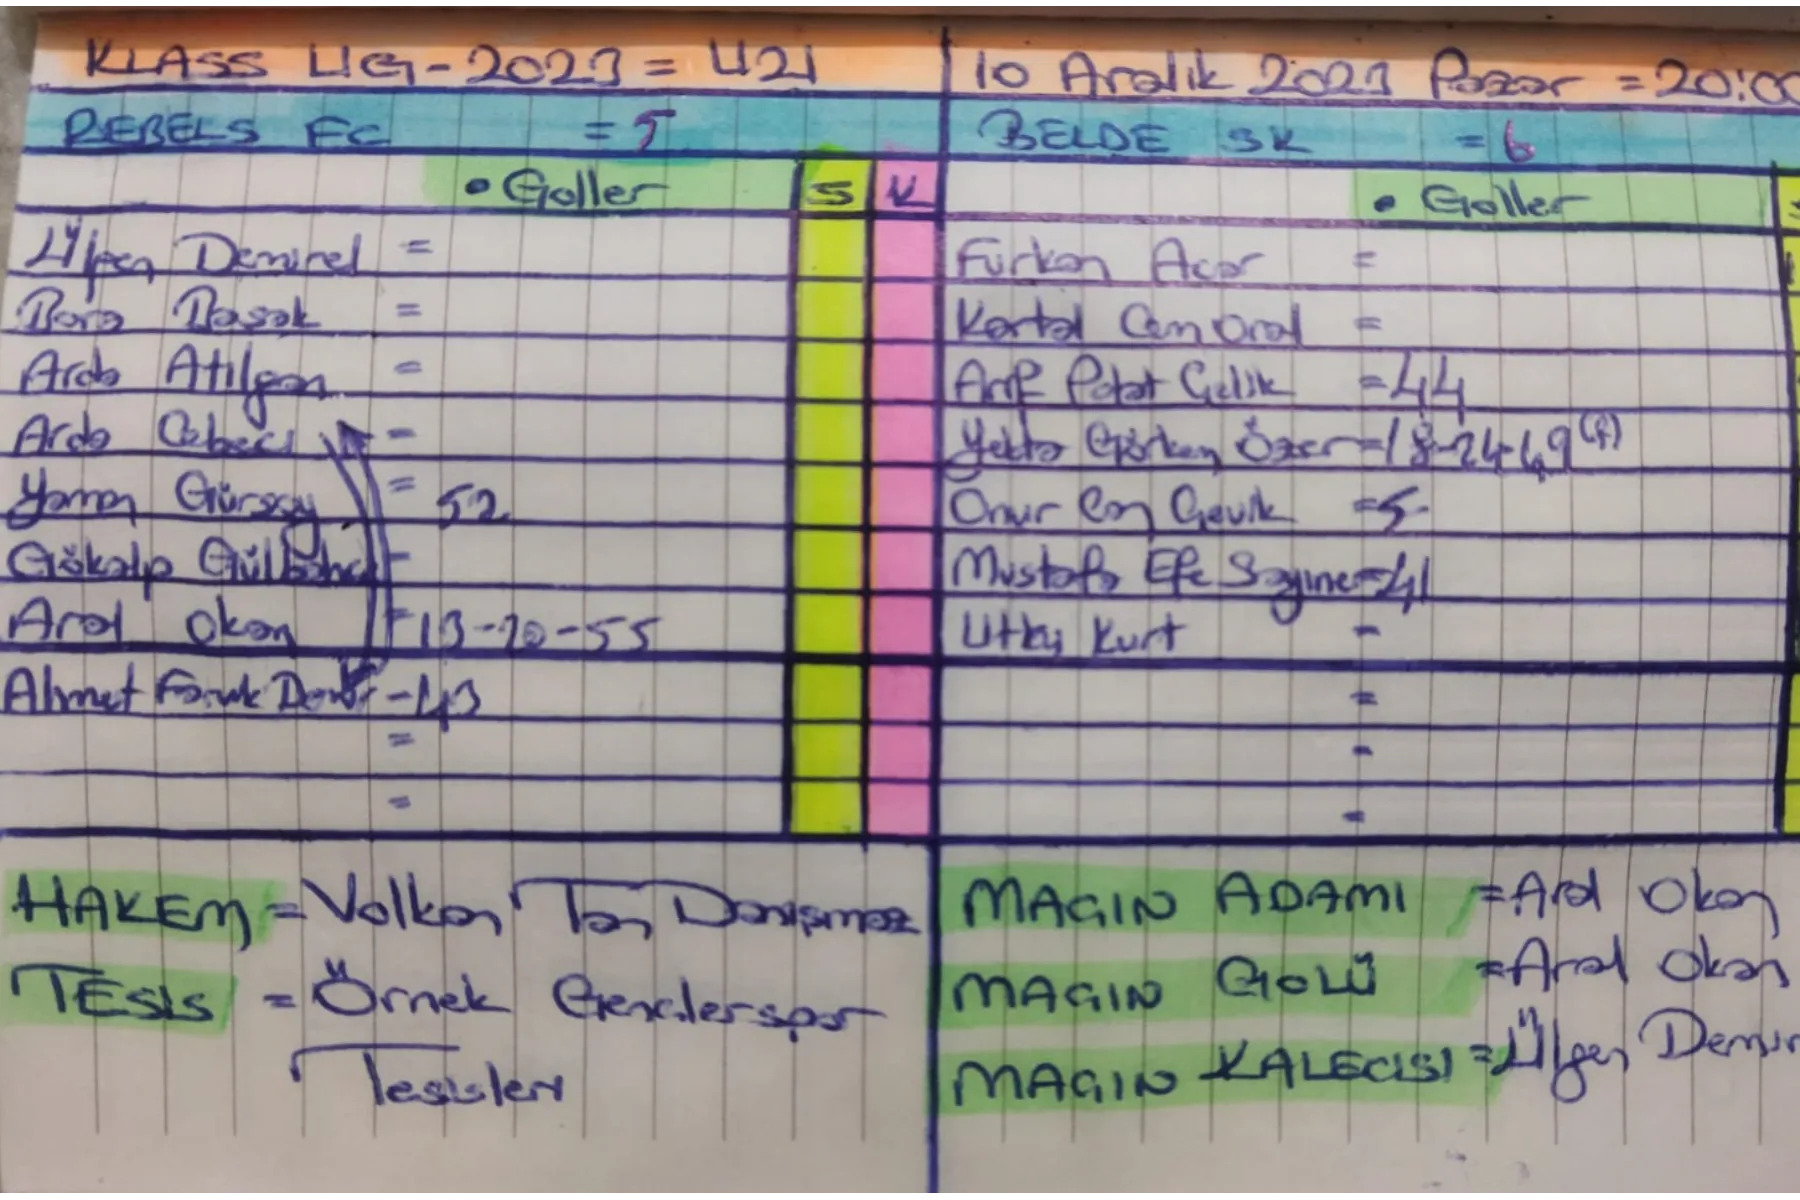 KLASS LİG-2023 = U21
10 Aralık 2023 Pazar = 20:00
REBELS FC = 5
BELDE SK = 6
• Goller S K
• Goller
Ülgen Demirel =
Bora Başak =
Arda Atılgan =
Arda Cebeci =
Yaman Gürsoy = 52
Gökalp =
Aral Okan = 13-20-55
Ahmet Faruk = 43
=
=
Furkan Acar =
Kartal Can Oral =
Arif Polat Çelik = 44
Yekta Görkem Özer = 18-24-49 (f)
Onur Can Çevik = 5
Mustafa Efe = 41
Utku Kurt =
=
=
=
HAKEM = Volkan Tan Danışmaz
TESİS = Örnek Gençlerspor
Tesisleri
MAÇIN ADAMI = Aral Okan
MAÇIN GOLÜ = Aral Okan
MAÇIN KALECİSİ = Ülgen Demir